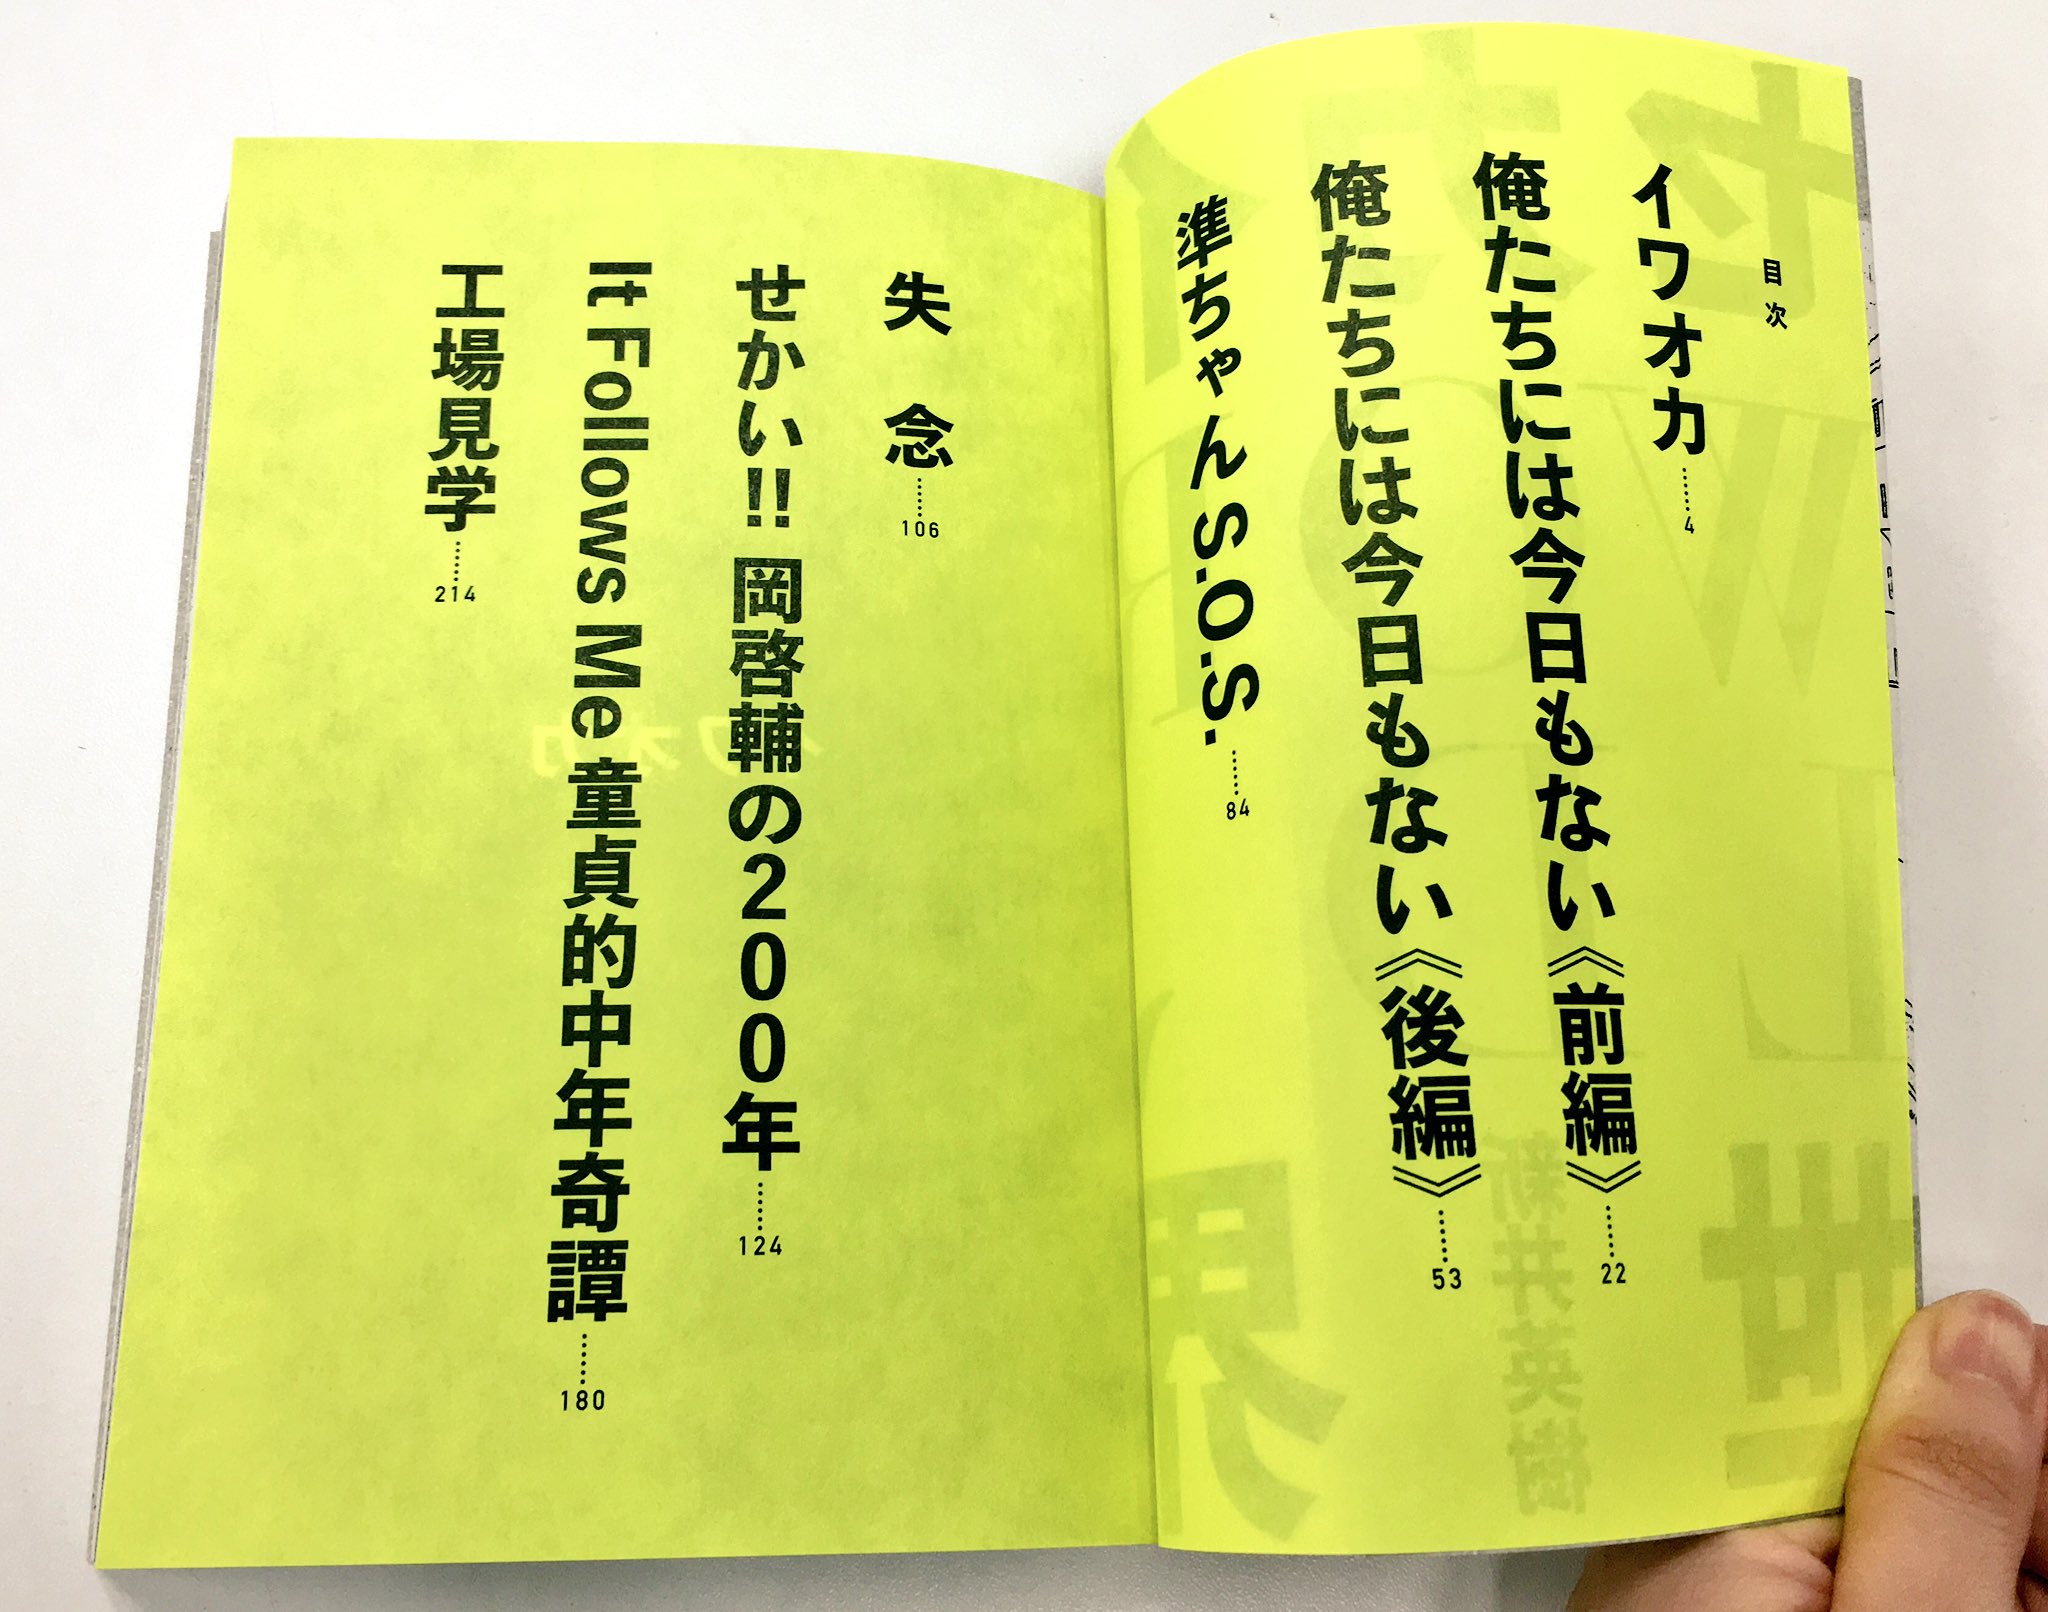 目次
イワオカ……4
俺たちには今日もない《前編》……22
俺たちには今日もない《後編》……53
準ちゃんS.O.S.……84
失念……106
せかい!! 岡啓輔の200年……124
It Follows Me 童貞的中年奇譚……180
工場見学……214